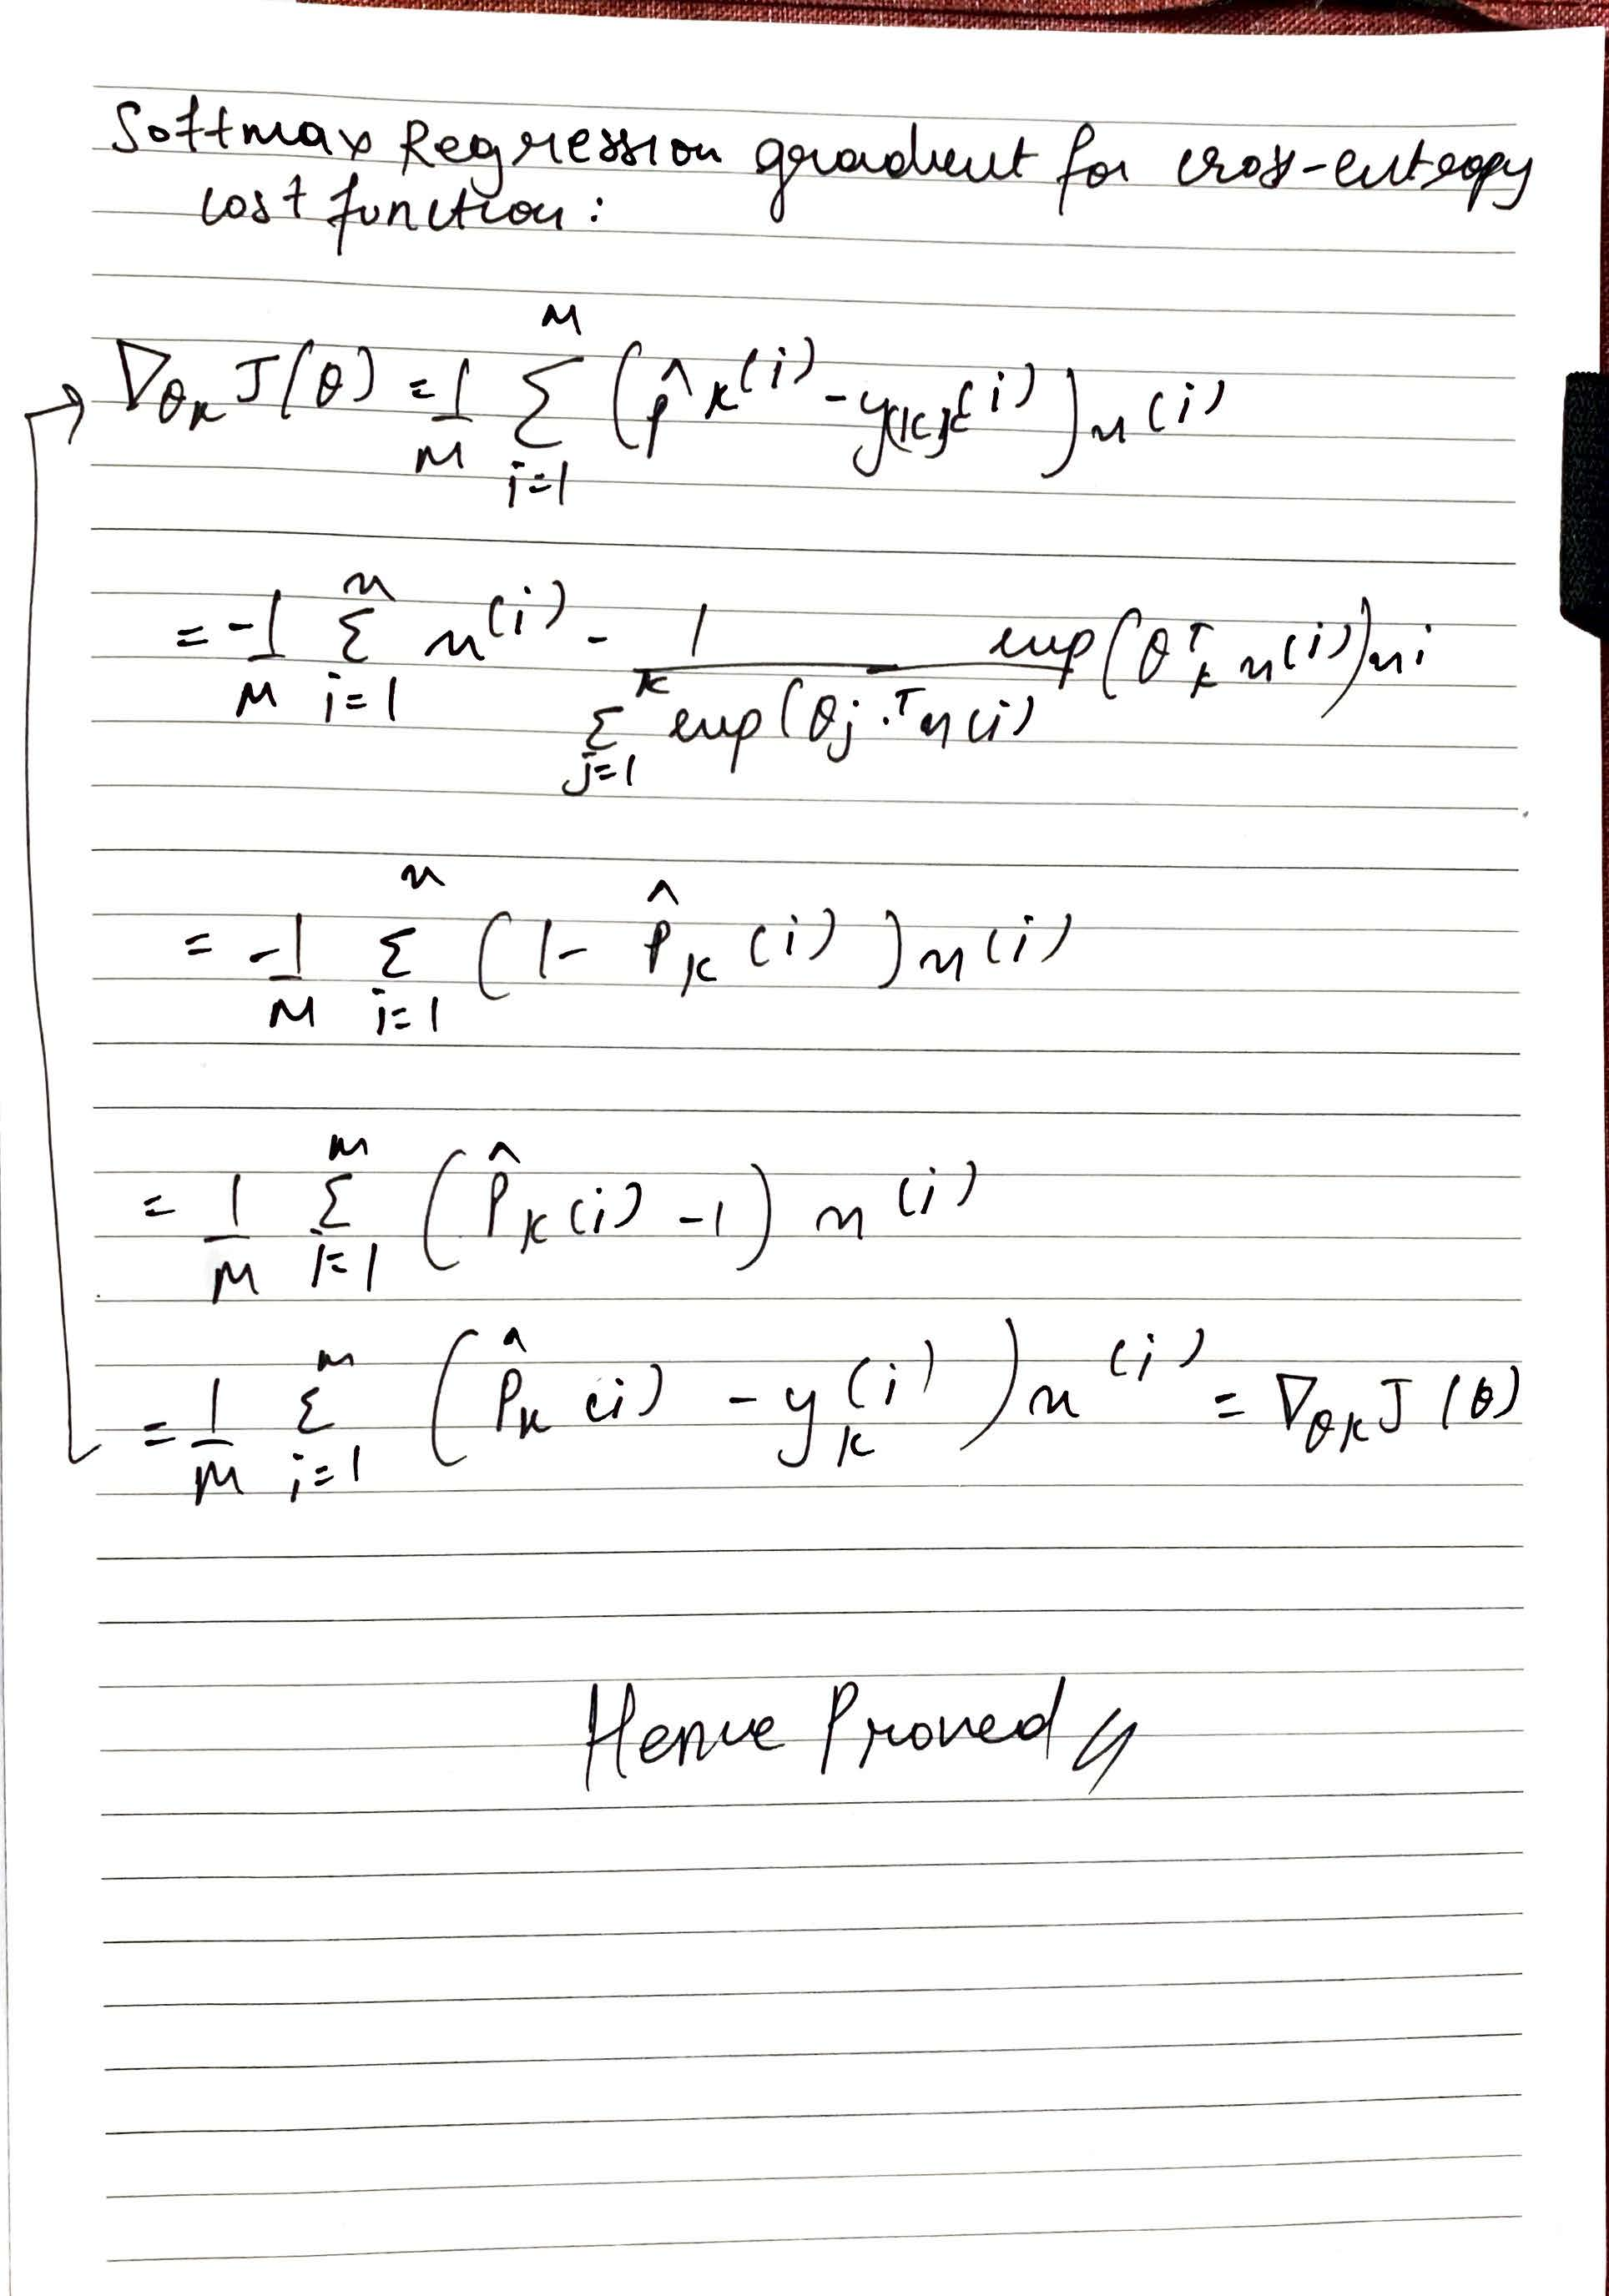 Softmax Regression gradient for cross-entropy
cost function:
∇θₖ J(θ) = 1/M Σ_{i=1}^{M} (p̂ₖ^(i) - yₖ^(i)) x^(i)
= -1/M Σ_{i=1}^{m} x^(i) - 1/(Σ_{j=1}^{k} exp(θj.ᵀx(i)) exp(θₖᵀ x^(i)) xi
= -1/M Σ_{i=1}^{m} (1 - P̂ₖ(i)) x(i)
= 1/M Σ_{i=1}^{m} (P̂ₖ(i) - 1) x^(i)
= 1/M Σ_{i=1}^{m} (P̂ₖ(i) - yₖ^(i)) x^(i) = ∇θₖ J(θ)
Hence Proved